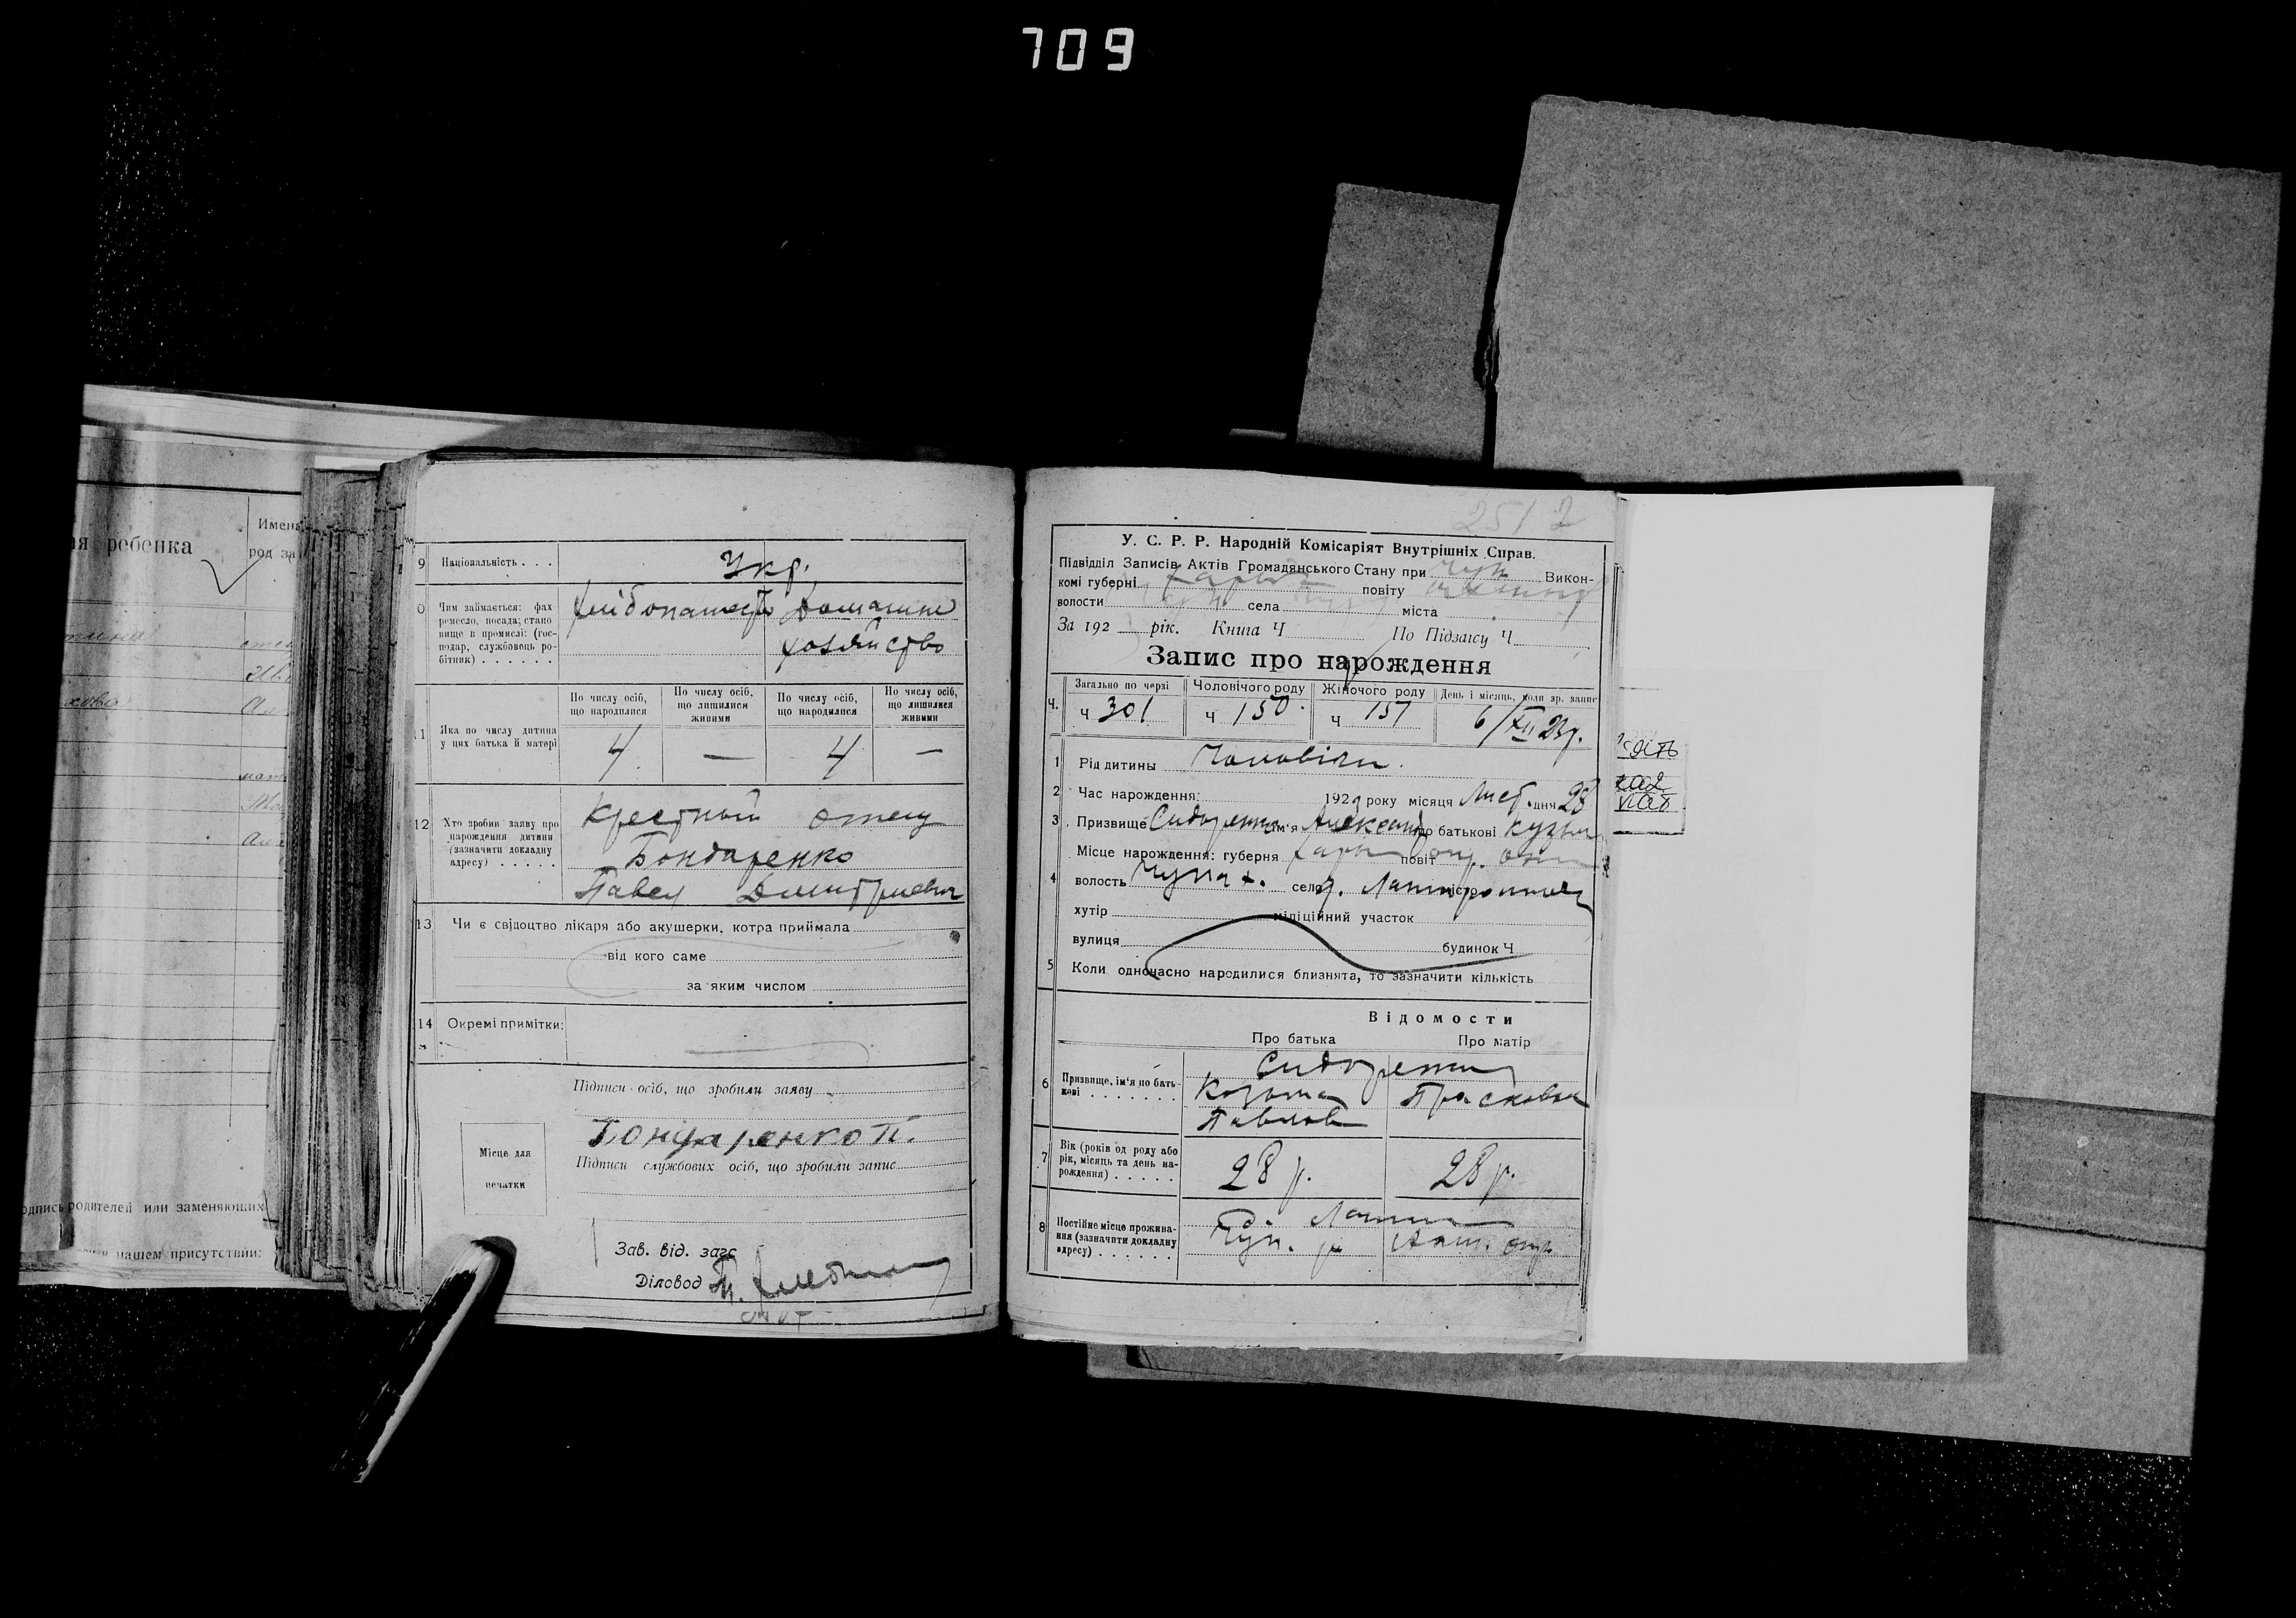 709
ребенка
Имена
род за
одпись родителей или заменяющих
нашем присутствии:
9 Національність . . . Укр.
Чим займається: фах
ремесло, посада; стано
вище в промислі: (гос-
подар, службовець ро-
бітник) . . . . . .
хлібопашество Домашнее
хозяйство
По числу осіб, що народилися
По числу осіб, що лишилися живими
По числу осіб, що народилися
По числу осіб, що лишилися живими
Яка по числу дитина
у цих батька й матері
4 — 4 —
12 Хто зробив заяву про
нарождення дитини
(зазначити докладну
адресу) . . . . .
Крестный отец
Бондаренко
Павел Дмитриевич
13 Чи є свідоцтво лікаря або акушерки, котра приймала
від кого саме
за яким числом
14 Окремі примітки:
Підписи осіб, що зробили заяву
Бондаренко П.
Місце для
печатки
Підписи службових осіб, що зробили запис
Зав. від. загс
Діловод
251
У. С. Р. Р. Народній Комісаріят Внутрішніх Справ.
Підвідділ Записів Актів Громадянського Стану при Чуп Викон-
комі губерні Харьк повіту
волости села міста
За 192 рік. Книга Ч По Підзагсу Ч
Запис про нарождення
Загально по черзі Чоловічого роду Жіночого роду День і місяць, коли зр. запис
Ч. ч 301 ч 150 ч 151 6/XII 23р.
1 Рід дитини Чоловічи.
2 Час нарождення: 1923 року місяця Лист. дня 28
3 Призвище Сидоренко ім'я Александ по батькові Кузьм
Місце нарождення: губерня Харьк повіт
4 волость село місто
хутір міліційний участок
вулиця будинок Ч
5 Коли одночасно народилися близнята, то зазначити кількість
Відомости
Про батька Про матір
6 Призвище, ім'я по бать-
кові . . . . . . .
Сидоренко
Козьма Прасковья
Павлов
7 Вік (років од роду або
рік, місяць та день на-
рождення) . . . . .
28 р. 28 р.
8 Постійне місце прожива-
ння (зазначити докладну
адресу) . . . . . .
Чуп.